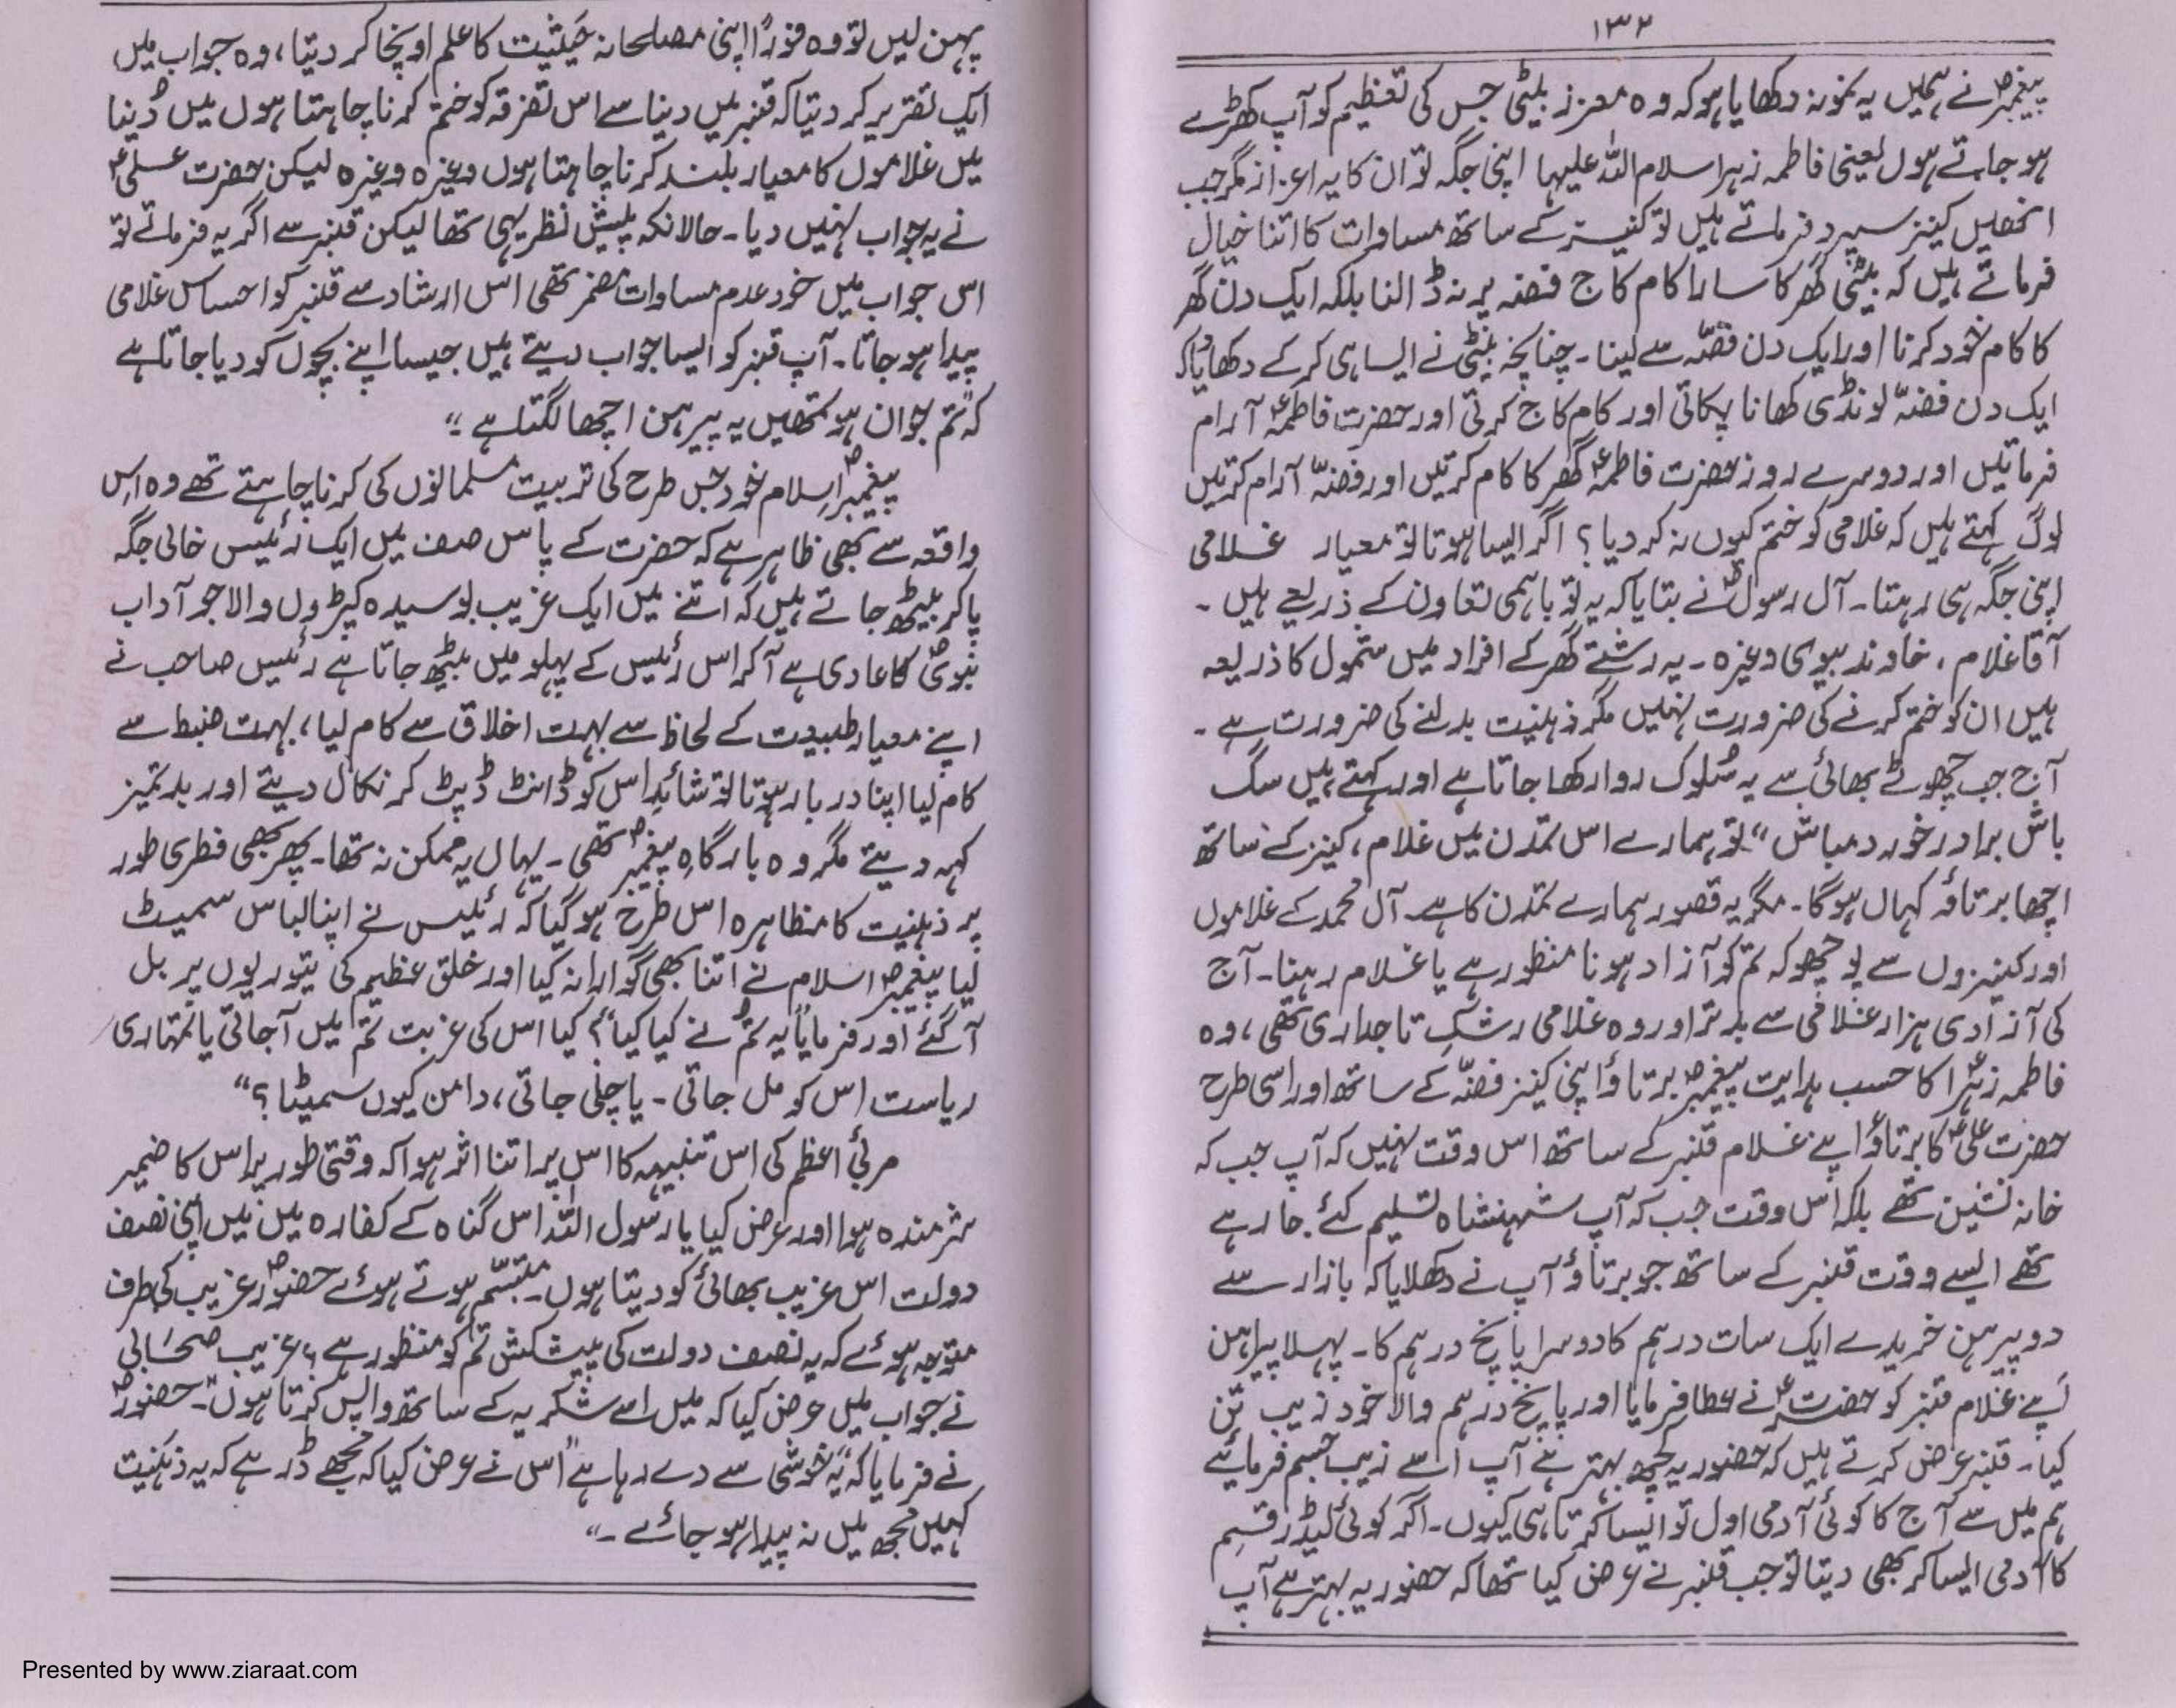 ۱۳۲
پیغمبرؐ نے ہمیں یہ نمونہ دکھایا ہو کہ وہ معزز بیٹی جس کی تعظیم کو آپ کھڑے
ہو جاتے ہوں یعنی فاطمہ زہرا سلام اللہ علیہا اپنی جگہ تو ان کا یہ اعزاز مگر جب
انھیں کینز سپرد فرماتے ہیں تو کنیز کے ساتھ مساوات کا اتنا خیال
فرماتے ہیں کہ بیٹی گھر کا سارا کام کاج فضہ پر نہ ڈالنا بلکہ ایک دن گھر
کا کام خود کرنا اور ایک دن فضّہ سے لینا۔ چنانچہ بیٹی نے ایسا ہی کر کے دکھایا کہ
ایک دن فضّہ لونڈی کھانا پکاتی اور کام کاج کرتی اور حضرت فاطمہؑ آرام
فرماتیں اور دوسرے روز حضرت فاطمہؑ گھر کا کام کرتیں اور فضّہ آرام کرتیں
لوگ کہتے ہیں کہ غلامی کو ختم کیوں نہ کر دیا؟ اگر ایسا ہوتا تو معیار غلامی
اپنی جگہ ہی رہتا۔ آل رسولؐ نے بتایا کہ یہ تو باہمی تعاون کے ذریعے ہیں۔
آقا غلام، خاوند بیوی وغیرہ۔ یہ رشتے گھر کے افراد میں شمول کا ذریعہ
ہیں ان کو ختم کرنے کی ضرورت نہیں مگر ذہنیت بدلنے کی ضرورت ہے۔
آج جب چھوٹے بھائی سے یہ سُلوک روا رکھا جاتا ہے اور کہتے ہیں سگ
باش برادر خورد مباش“ تو ہمارے اس تمدن میں غلام، کینز کے ساتھ
اچھا برتاؤ کہاں ہوگا۔ مگر یہ قصور ہمارے تمدن کا ہے۔ آل محمدؐ کے غلاموں
اور کنیزوں سے پوچھو کہ تم کو آزاد ہونا منظور ہے یا غلام رہنا۔ آج
کی آزادی ہزار غلامی سے بدتر اور وہ غلامی رشکِ تاجداری تھی، وہ
فاطمہ زہراؑ کا حسب ہدایت پیغمبرؐ برتاؤ اپنی کینز فضّہ کے ساتھ اور اسی طرح
حضرت علیؑ کا برتاؤ اپنے غلام قنبر کے ساتھ اس وقت نہیں کہ آپ جب کہ
خانہ نشین تھے بلکہ اس وقت جب کہ آپ شہنشاہ تسلیم کئے جا رہے
تھے ایسے وقت قنبر کے ساتھ جو برتاؤ آپ نے دکھلایا کہ بازار سے
دو پیرہن خریدے ایک سات درہم کا دوسرا پانچ درہم کا۔ پہلا پیراہن
اپنے غلام قنبر کو حضرتؑ نے عطا فرمایا اور پانچ درہم والا خود زیب تن
کیا۔ قنبر عرض کرتے ہیں کہ حضور یہ کچھ بہتر ہے آپ اسے زیب جسم فرمایئے
ہم میں سے آج کا کوئی آدمی اول تو ایسا کرتا ہی کیوں۔ اگر کوئی لیڈر قسم
کا آدمی ایسا کر بھی دیتا تو جب قنبر نے عرض کیا تھا کہ حضور یہ بہتر ہے آپ
پہن لیں تو وہ فوراً اپنی مصلحانہ حَیثیت کا علم اونچا کر دیتا، وہ جواب میں
ایک تقریر کر دیتا کہ قنبر میں دنیا سے اس تفرقہ کو ختم کرنا چاہتا ہوں میں دُنیا
میں غلاموں کا معیار بلند کرنا چاہتا ہوں وغیرہ وغیرہ لیکن حضرت علیؑ
نے یہ جواب نہیں دیا۔ حالانکہ پیش نظر یہی تھا لیکن قنبر سے اگر یہ فرماتے تو
اس جواب میں خود عدم مساوات مُضمر تھی اس ارشاد سے قنبر کو احساس غلامی
پیدا ہو جاتا۔ آپ قنبر کو ایسا جواب دیتے ہیں جیسا اپنے بچوں کو دیا جاتا ہے
کہ ”تم جوان ہو تمھیں یہ پیرہن اچھا لگتا ہے“۔
پیغمبرِؐ اسلام خود جس طرح کی تربیت مسلمانوں کی کرنا چاہتے تھے وہ اس
واقعہ سے بھی ظاہر ہے کہ حضرت کے پاس صف میں ایک رئیس خالی جگہ
پا کر بیٹھ جاتے ہیں کہ اتنے میں ایک غریب بوسیدہ کپڑوں والا جو آداب
نبویؐ کا عادی ہے آ کر اس رئیس کے پہلو میں بیٹھ جاتا ہے رئیس صاحب نے
اپنے معیار طبیعت کے لحاظ سے بہت اخلاق سے کام لیا، بہت ضبط سے
کام لیا اپنا دربار ہوتا تو شاید اس کو ڈانٹ ڈپٹ کر نکال دیتے اور بدتمیز
کہہ دیتے مگر وہ بارگاہِ پیغمبرؐ تھی۔ یہاں یہ ممکن نہ تھا۔ پھر بھی فطری طور
پر ذہنیت کا مظاہرہ اس طرح ہو گیا کہ رئیس نے اپنا لباس سمیٹ
لیا پیغمبرؐ اسلام نے اتنا بھی گوارا نہ کیا اور خلق عظیم کی تیوریوں پر بل
آ گئے اور فرمایا ”یہ تم نے کیا کیا“؟ کیا اس کی غربت تم میں آ جاتی یا تمہاری
ریاست اس کو مل جاتی۔ یا چلی جاتی، دامن کیوں سمیٹا؟“
مربیٔ اعظم کی اس تنبیہہ کا اس پر اتنا اثر ہوا کہ وقتی طور پر اس کا ضمیر
شرمندہ ہوا اور عرض کیا یا رسول اللہ اس گناہ کے کفارہ میں میں اپنی نصف
دولت اس غریب بھائی کو دیتا ہوں۔ متبسّم ہوتے ہوئے حضورؐ غریب کی طرف
متوجہ ہوئے کہ یہ نصف دولت کی پیشکش تم کو منظور ہے؟ غریب صحابی
نے جواب میں عرض کیا کہ میں اسے شکریہ کے ساتھ واپس کرتا ہوں“۔ حضورؐ
نے فرمایا کہ ”یہ خوشی سے دے رہا ہے“ اس نے عرض کیا کہ مجھے ڈر ہے کہ یہ ذہنیت
کہیں مجھ میں نہ پیدا ہو جائے۔“
Presented by www.ziaraat.com